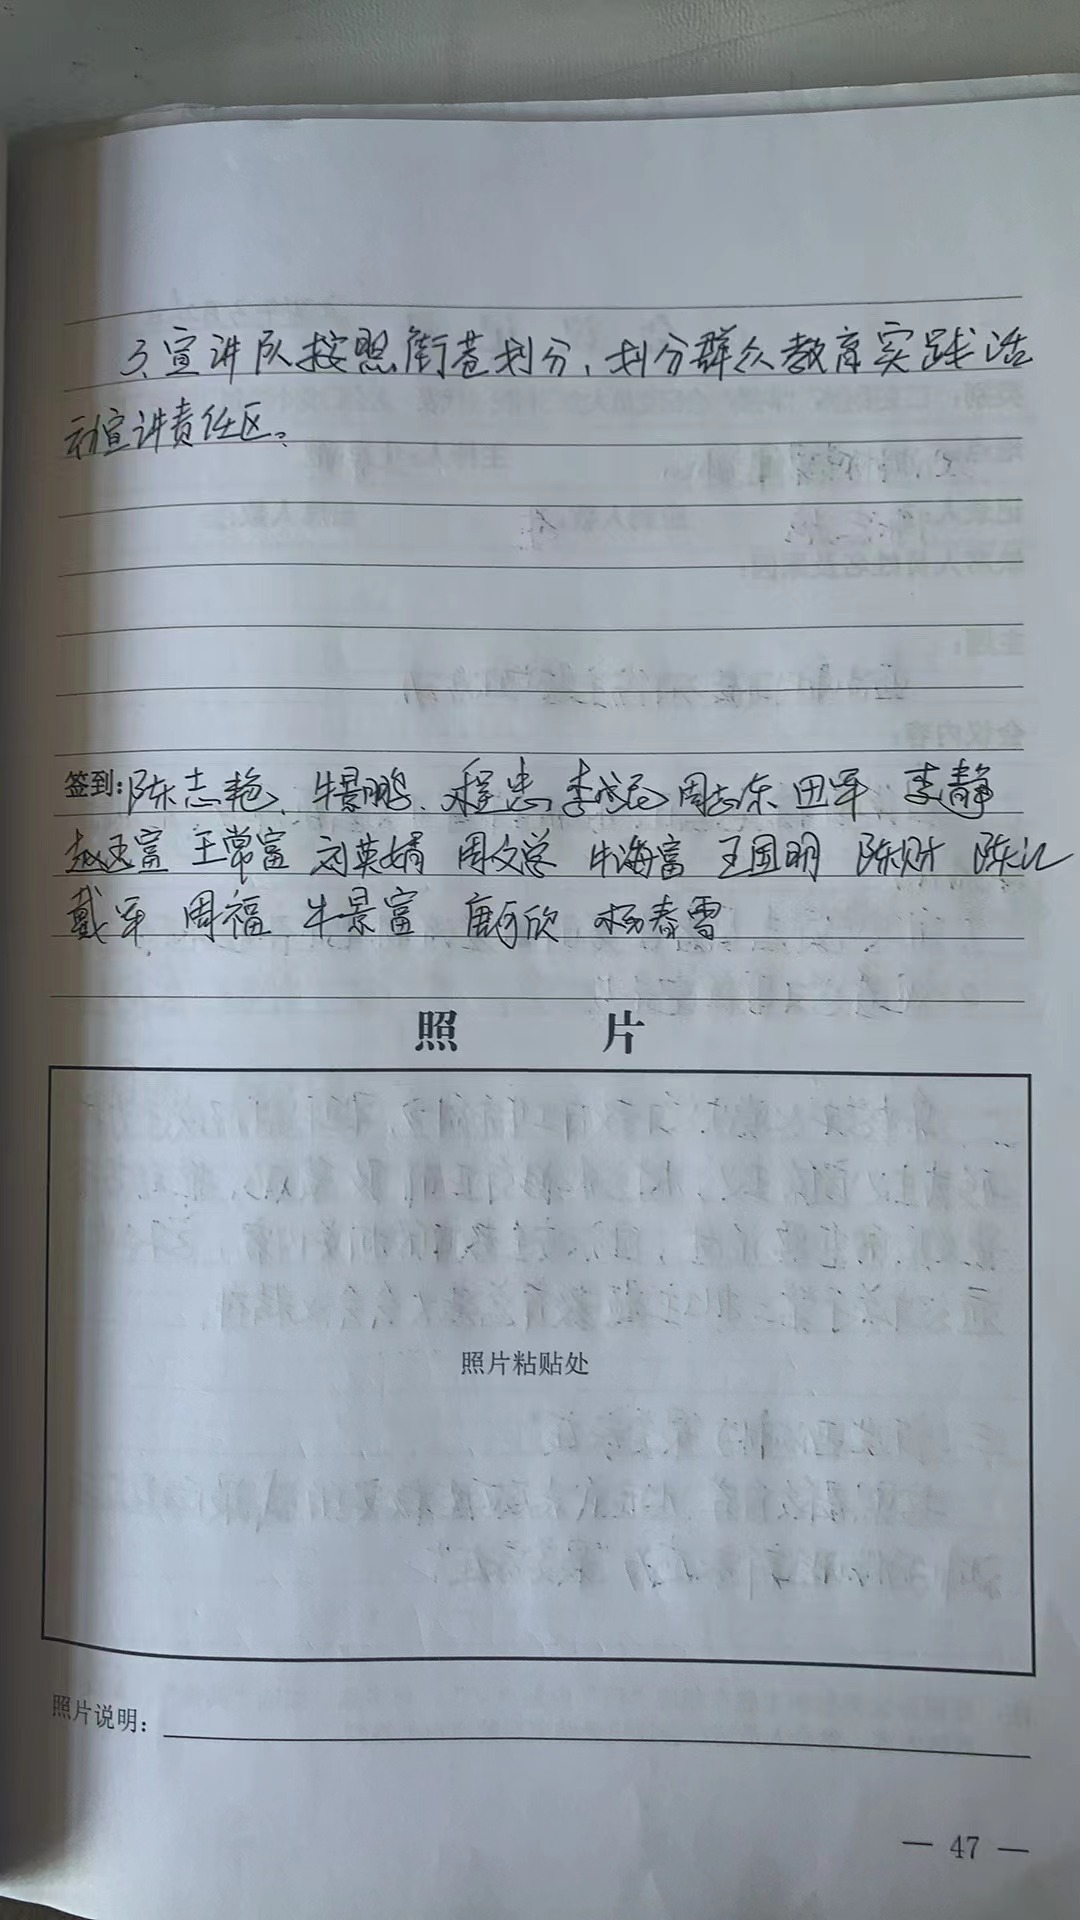 3、宣讲队按照街巷划分，划分群众教育实践活
动宣讲责任区。
签到：陈志艳、牛景鹏、程忠、李成民 周志东 田军 李静
赵玉富 王常富 刘英婧 周文学 牛海富 王国明 陈财 陈江
戴军 周福 牛景富 唐可欣 杨春雪
照 片
照片粘贴处
照片说明：
— 47 —